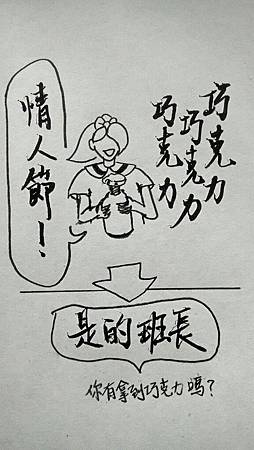 情人節！
巧克力
巧克力
巧克力
是的班長
你有拿到巧克力嗎？